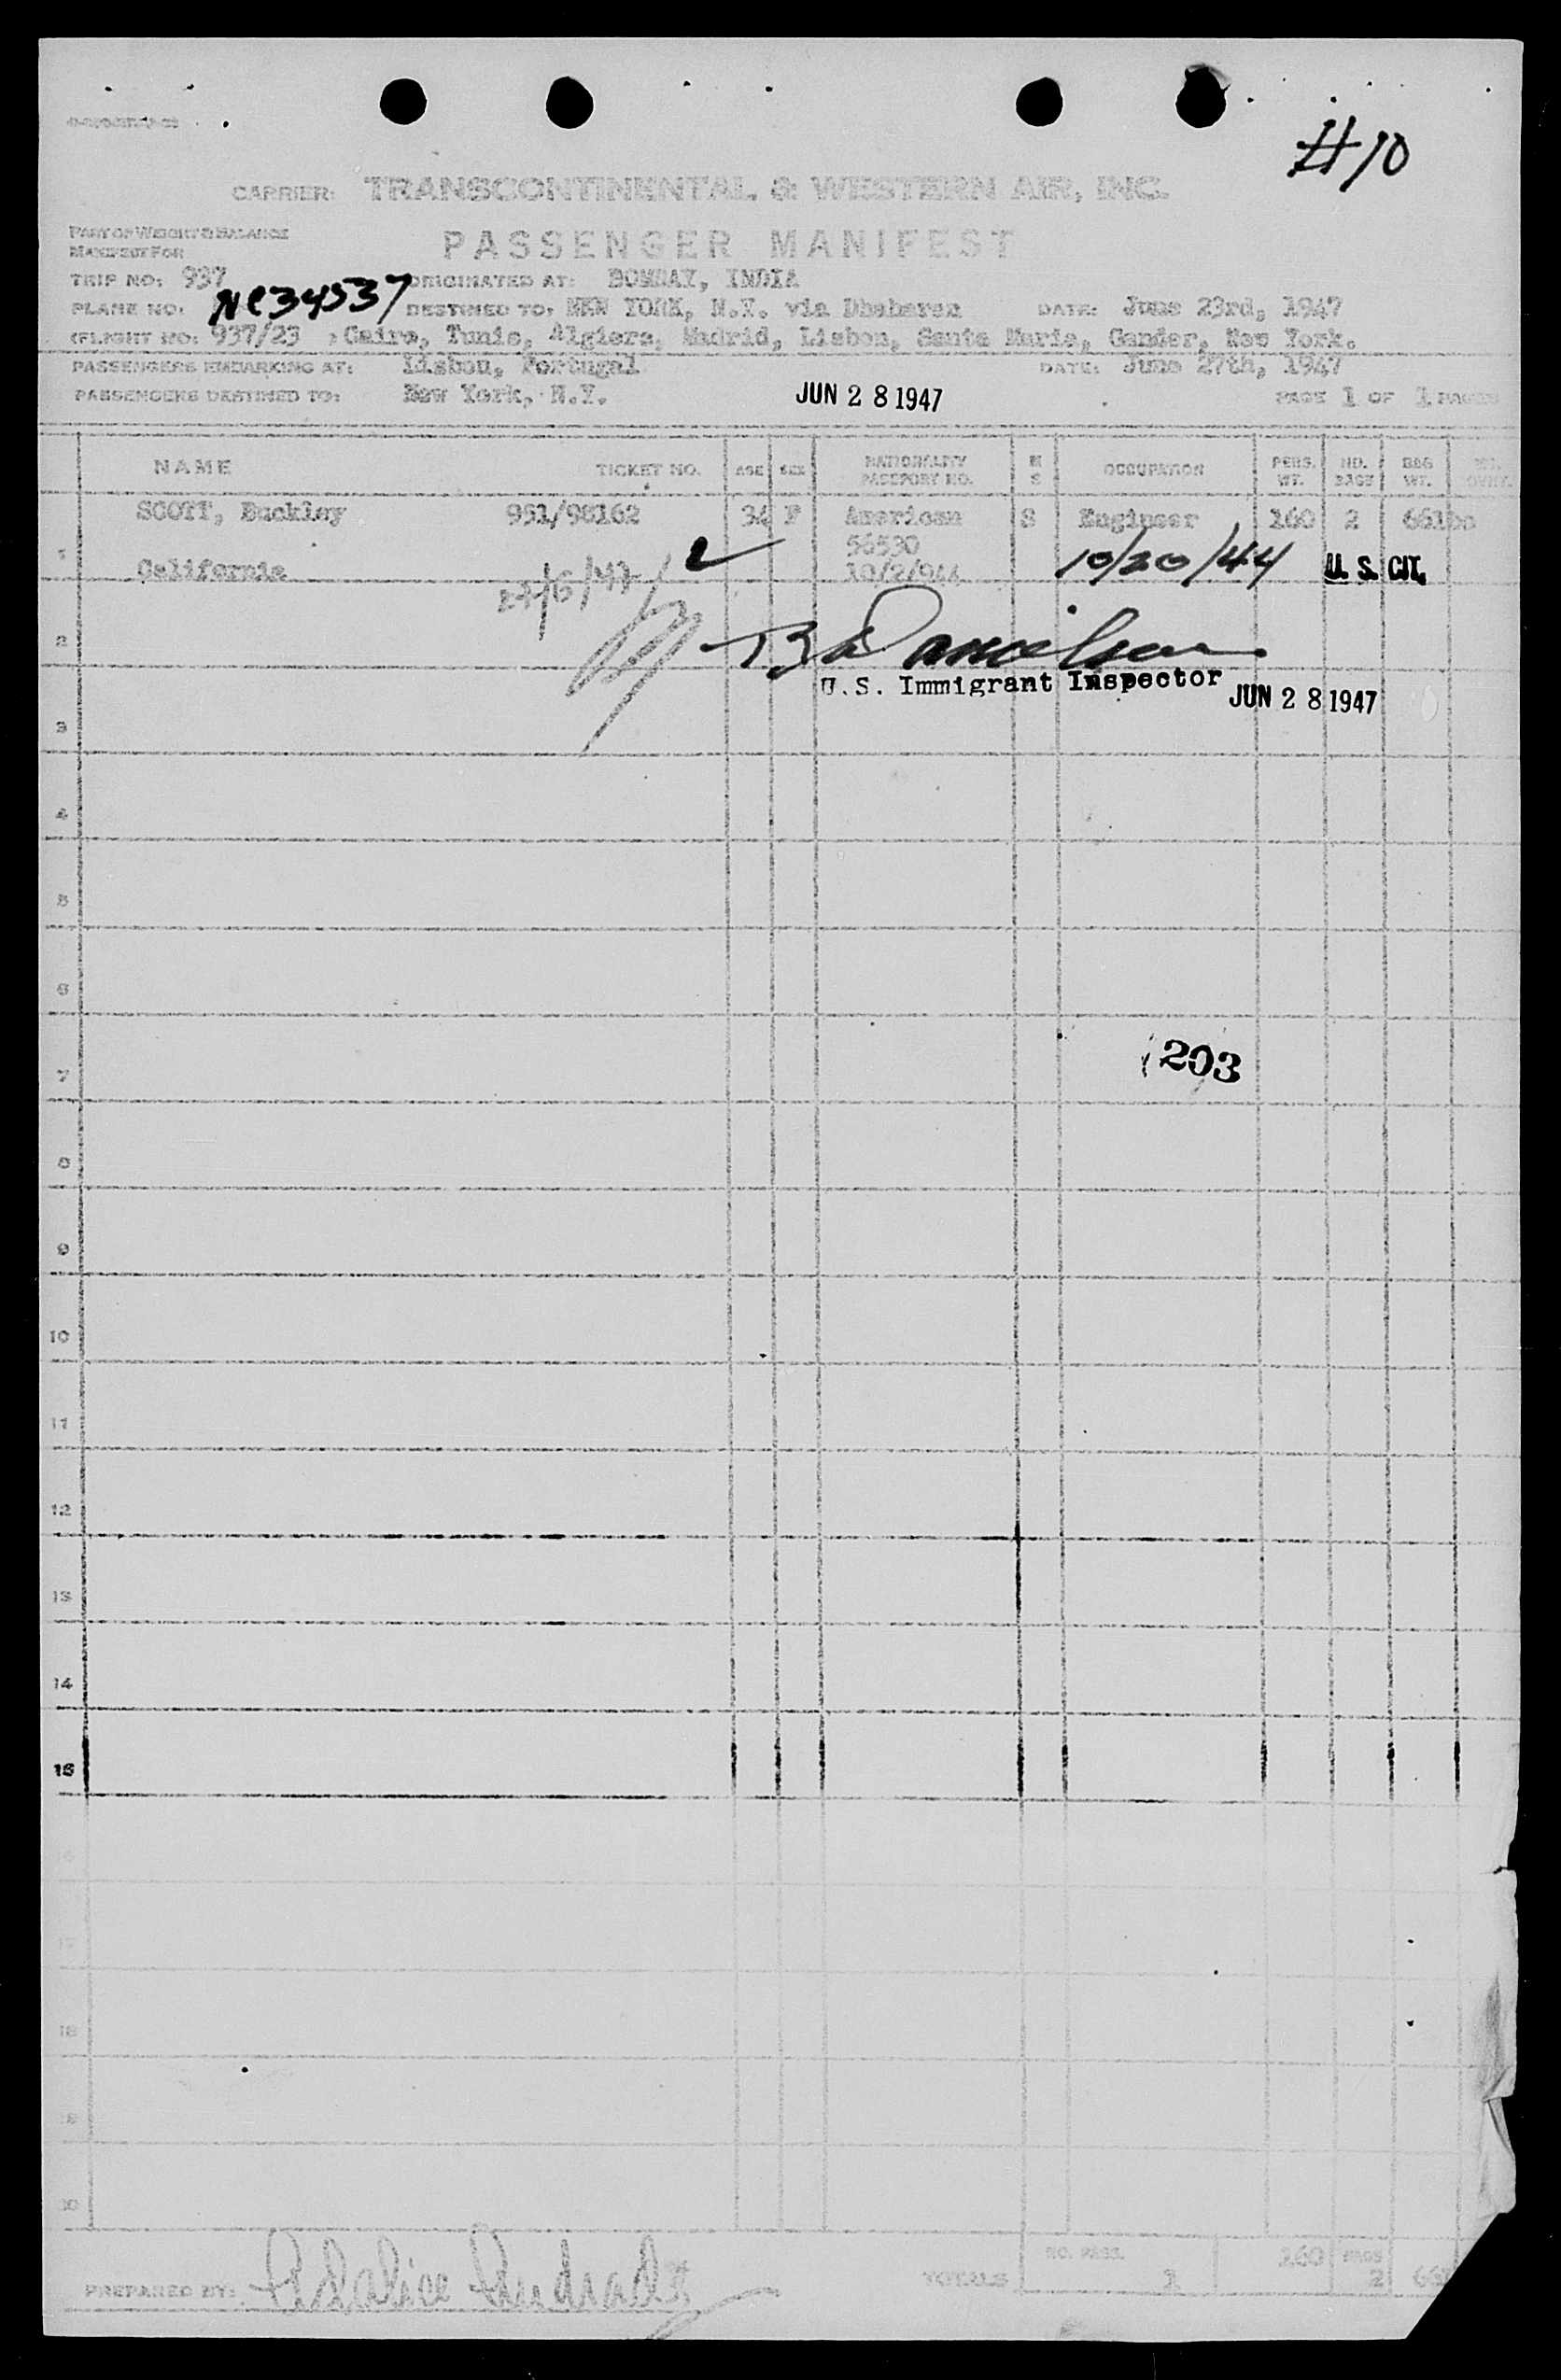 #10
CARRIER: TRANSCONTINENTAL & WESTERN AIR, INC.
PART OF WEIGHT & BALANCE
MANIFEST FOR
PASSENGER MANIFEST
TRIP NO: 937 ORIGINATED AT: BOMBAY, INDIA
PLANE NO: NC34537 DESTINED TO: NEW YORK, N.Y. via Dhaharen DATE: June 23rd, 1947
(FLIGHT NO: 937/23 ) Cairo, Tunis, Algiers, Madrid, Lisbon, Santa Maria, Gander, New York.
PASSENGERS EMBARKING AT: Lisbon, Portugal DATE: June 27th, 1947
PASSENGERS DESTINED TO: New York, N.Y. JUN 28 1947 PAGE 1 OF 1 PAGES
NAME TICKET NO. AGE SEX NATIONALITY PASSPORT NO. M S OCCUPATION PERS. WT. NO. BAGS BAG WT. WT. OVWT.
SCOTT, Buckley 951/98162 34 F American S Engineer 160 2 661bs
1 56530
California 27/6/47 10/2/944 10/20/44 U. S. CIT.
2
U.S. Immigrant Inspector JUN 28 1947
3
4
5
6
7 203
8
9
10
11
12
13
14
15
16
17
18
19
20
PREPARED BY: TOTALS NO. PASS. 1 160 BAGS 2